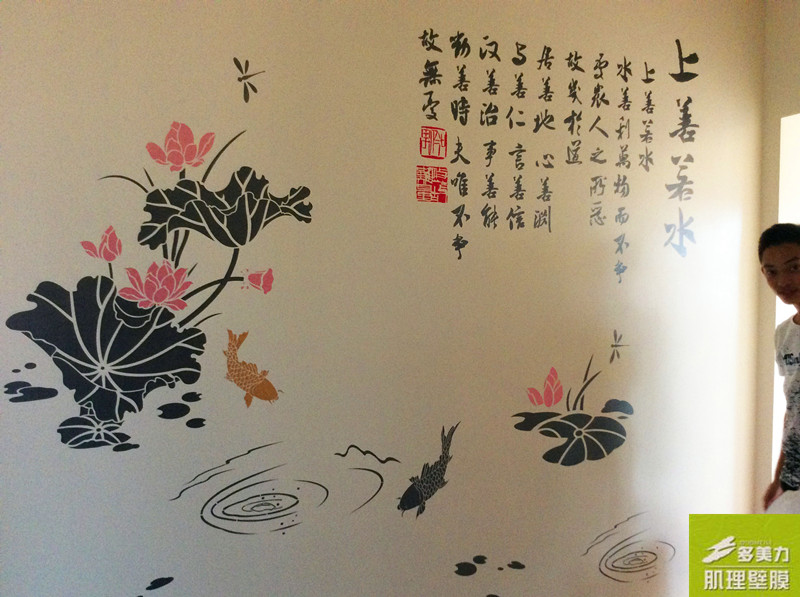 上善若水
上善若水
水善利萬物而不争
處衆人之所恶
故幾於道
居善地 心善渊
与善仁 言善信
政善治 事善能
動善時 夫唯不争
故無尤
多美力
肌理壁膜